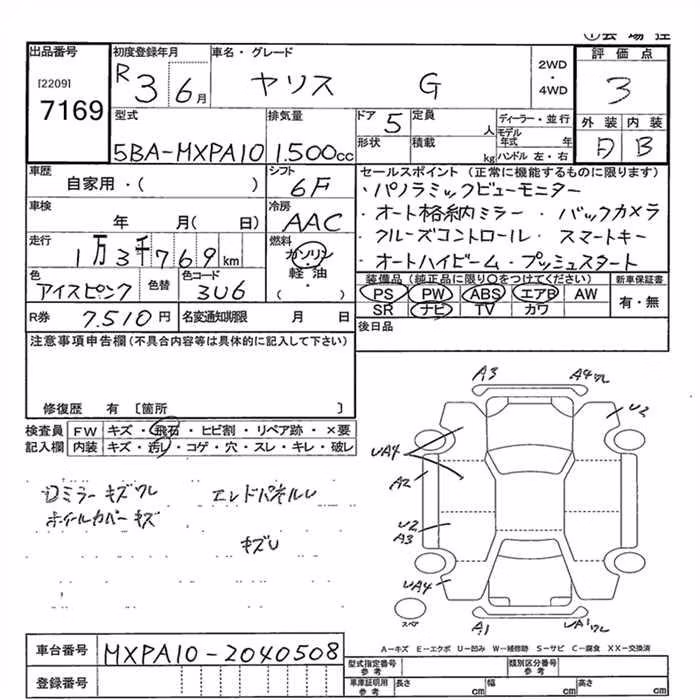 出品番号
[2209]
7169
初度登録年月
R3 6月
車名・グレード
ヤリス G
2WD
・
4WD
評価点
3
型式
5BA-MXPA10
排気量
1.500cc
ドア 5
定員 人
形状
積載 kg
ディーラー・並行
モデル年式 年
ハンドル 左・右
外装 内装
B
車歴
自家用・( )
シフト
6F
セールスポイント (正常に機能するものに限ります)
・パノラミックビューモニター
・オート格納ミラー・バックカメラ
・クルーズコントロール・スマートキー
・オートハイビーム・プッシュスタート
車検
年 月( 日)
冷房
AAC
走行
1万3千769km
燃料
ガソリン
・
軽油
( )
色
アイスピンク
色替
色コード
3U6
装備品(純正品に限り○をつけてください)
新車保証書
PS PW ABS エアB AW
SR ナビ TV カワ
有・無
R券
7.510円
名変通知期限 月 日
後日品
注意事項申告欄(不具合内容等は具体的に記入して下さい)
修復歴 有 〔箇所 〕
検査員記入欄
FW キズ・飛石・ヒビ割・リペア跡・×要
内装 キズ・汚レ・コゲ・穴・スレ・キレ・破レ
ミラーキズワレ
ホイールカバーキズ
エンドパネルU
キズU
A3
A4ワレ
U2
UA4
A2
U2
A3
UA4
スペア
A1
UA1ワレ
A−キズ E−エクボ U−凹み W−補修跡 S−サビ C−腐食 XX−交換済
車台番号
MXPA10-2040508
登録番号
型式指定番号 参考
類別区分番号 参考
車庫証明用 参考
長さ cm
幅 cm
高さ cm